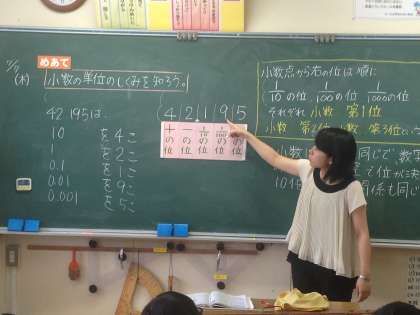 めあて
小数の単位のしくみを知ろう。
(木)
42.195は
10を4こ
1を2こ
0.1を1こ
0.01を9こ
0.001を5こ
42.195
十の位
一の位
1/10の位
1/100の位
の位
小数点から右の位は順に
1/10の位 1/100の位 1/1000の位
それぞれ 小数 第1位
小数 第2位 小数 第3位
同じで
位が
も同じ